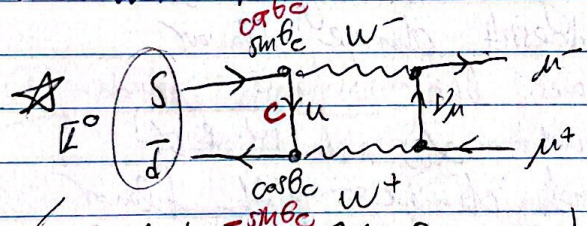 cosθc
sinθc W⁻
S μ⁻
c u νμ
K̄⁰
d̄ μ⁺
cosθc W⁺
-sinθc